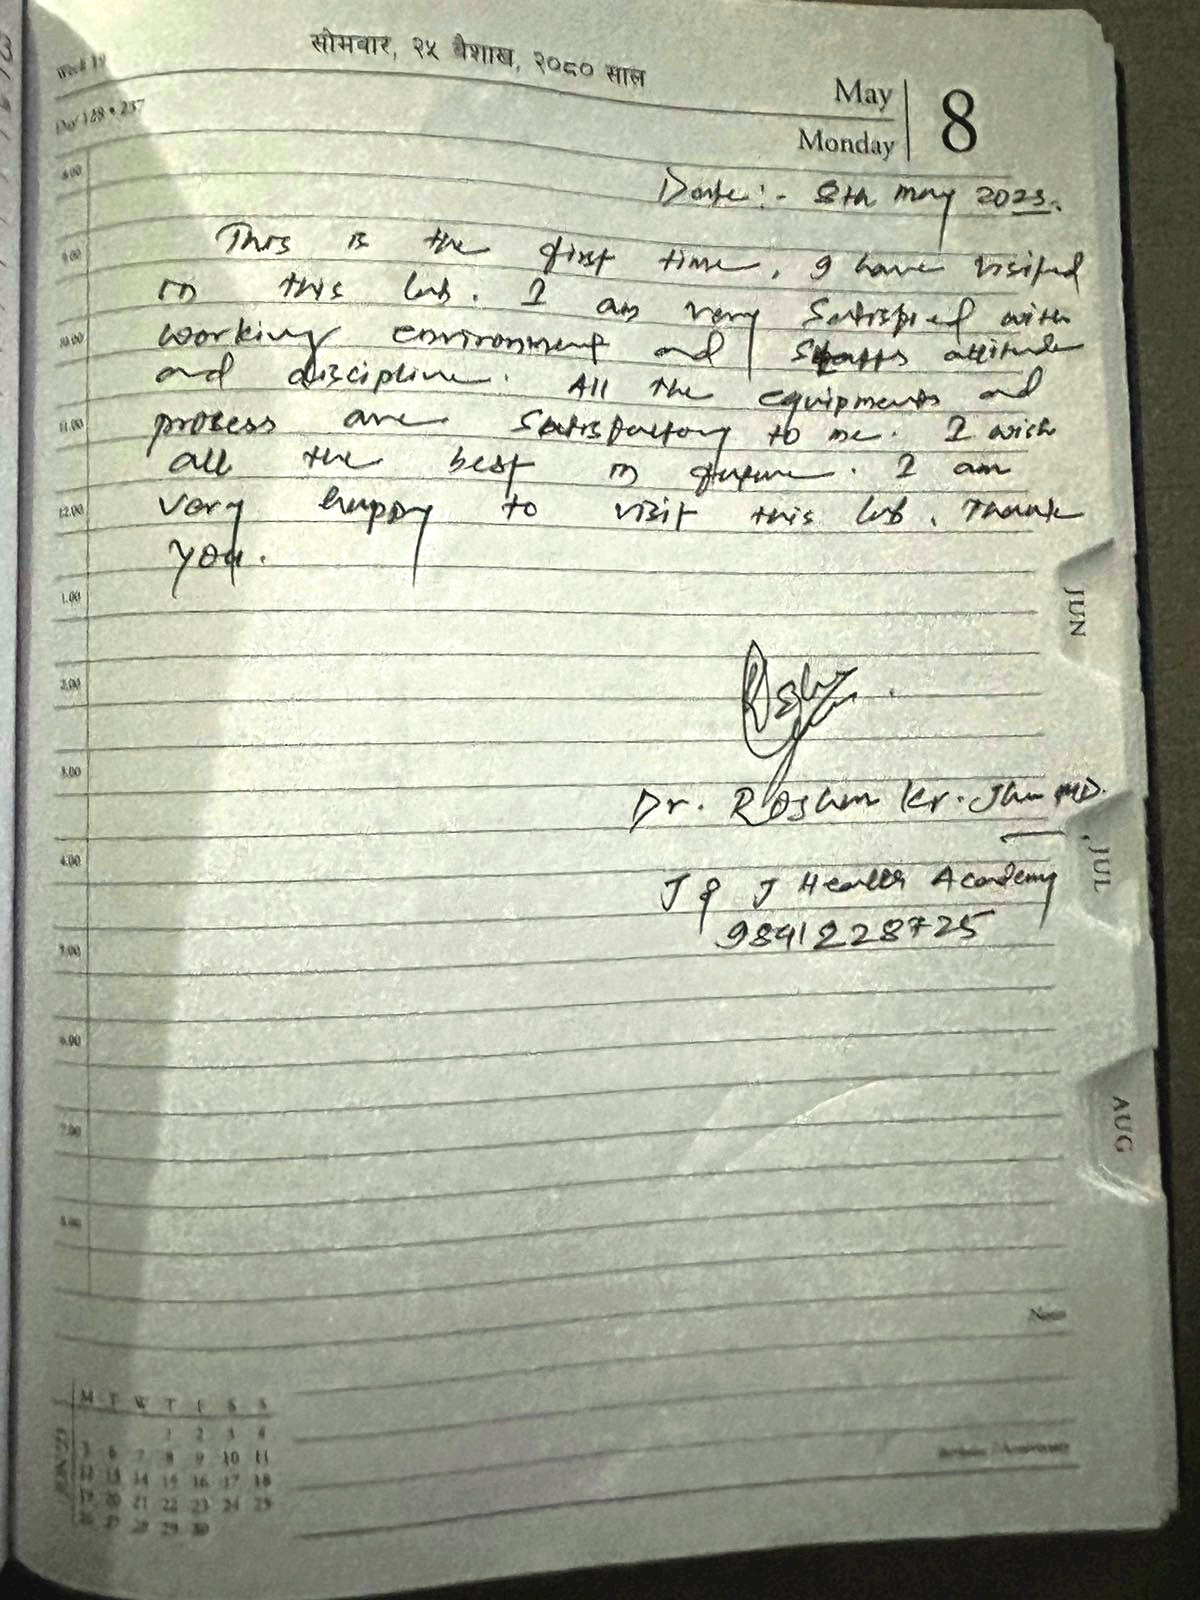 सोमबार, २५ बैशाख, २०८० साल
Week 19
Day 128 • 237
May
Monday
8
Date :- 8th may 2023.
This is the first time, I have visited
in this lab. I am very satisfied with
working environment and staffs attitude
and discipline. All the equipments and
process are satisfactory to me. I wish
all the best in future. I am
very happy to visit this lab. Thank
you.
Dr. Roshan Kr. Jha MD.
J & J Health Academy
9841228725
8.00
9.00
10.00
11.00
12.00
1.00
2.00
3.00
4.00
5.00
6.00
7.00
8.00
JUN
JUL
AUG
Notes
JUN'23
M T W T F S S
1 2 3 4
5 6 7 8 9 10 11
12 13 14 15 16 17 18
19 20 21 22 23 24 25
26 27 28 29 30